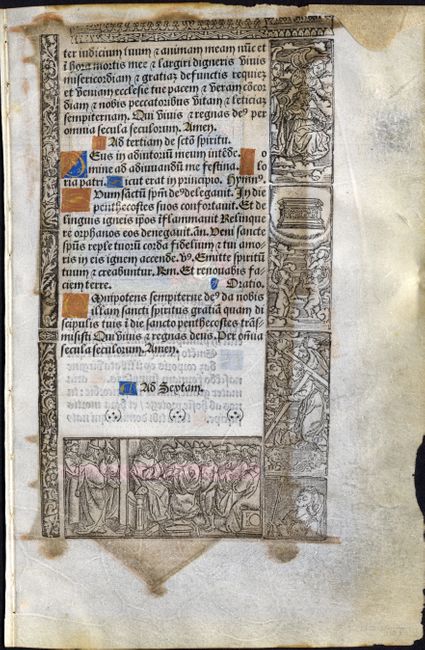 ter iudicium tuum ⁊ animam meam nūc et
ī hora mortis mee ⁊ largiri digneris viuis
misericordiam ⁊ gratiaȝ defunctis requieȝ
et veniam ecclesie tue pacem ⁊ veram cōcor
diam ⁊ nobis peccatoribus vitam ⁊ leticiaȝ
sempiternam. Qui viuis ⁊ regnas deꝰ per
omnia secula seculorum. Amen.
Ad tertiam de sctō spiritu.
Deus in adiutoriū meum intēde. Do
mine ad adiuuandū me festina. Glo
ria patri. Sicut erat in principio. Hymnꝰ.
Suum sanctū spm̄ deꝰ delegauit. In die
penthecostes suos confortauit. Et de
linguis igneis ip̄os īflammauit Relinque
re orphanos eos denegauit. añ. Veni sancte
sp̄us reple tuorū corda fidelium ⁊ tui amo
ris in eis ignem accende. ℣. Emitte spiritū
tuum ⁊ creabuntur. Rm. Et renouabis fa
ciem terre. Oratio.
Omnipotens sempiterne deꝰ da nobis
illam sancti spiritus gratiā quam di
scipulis tuis ī die sancto penthecostes trās
misisti Qui viuis ⁊ regnas deus. Per om̄ia
secula seculorum. Amen.
Ad Sextam.